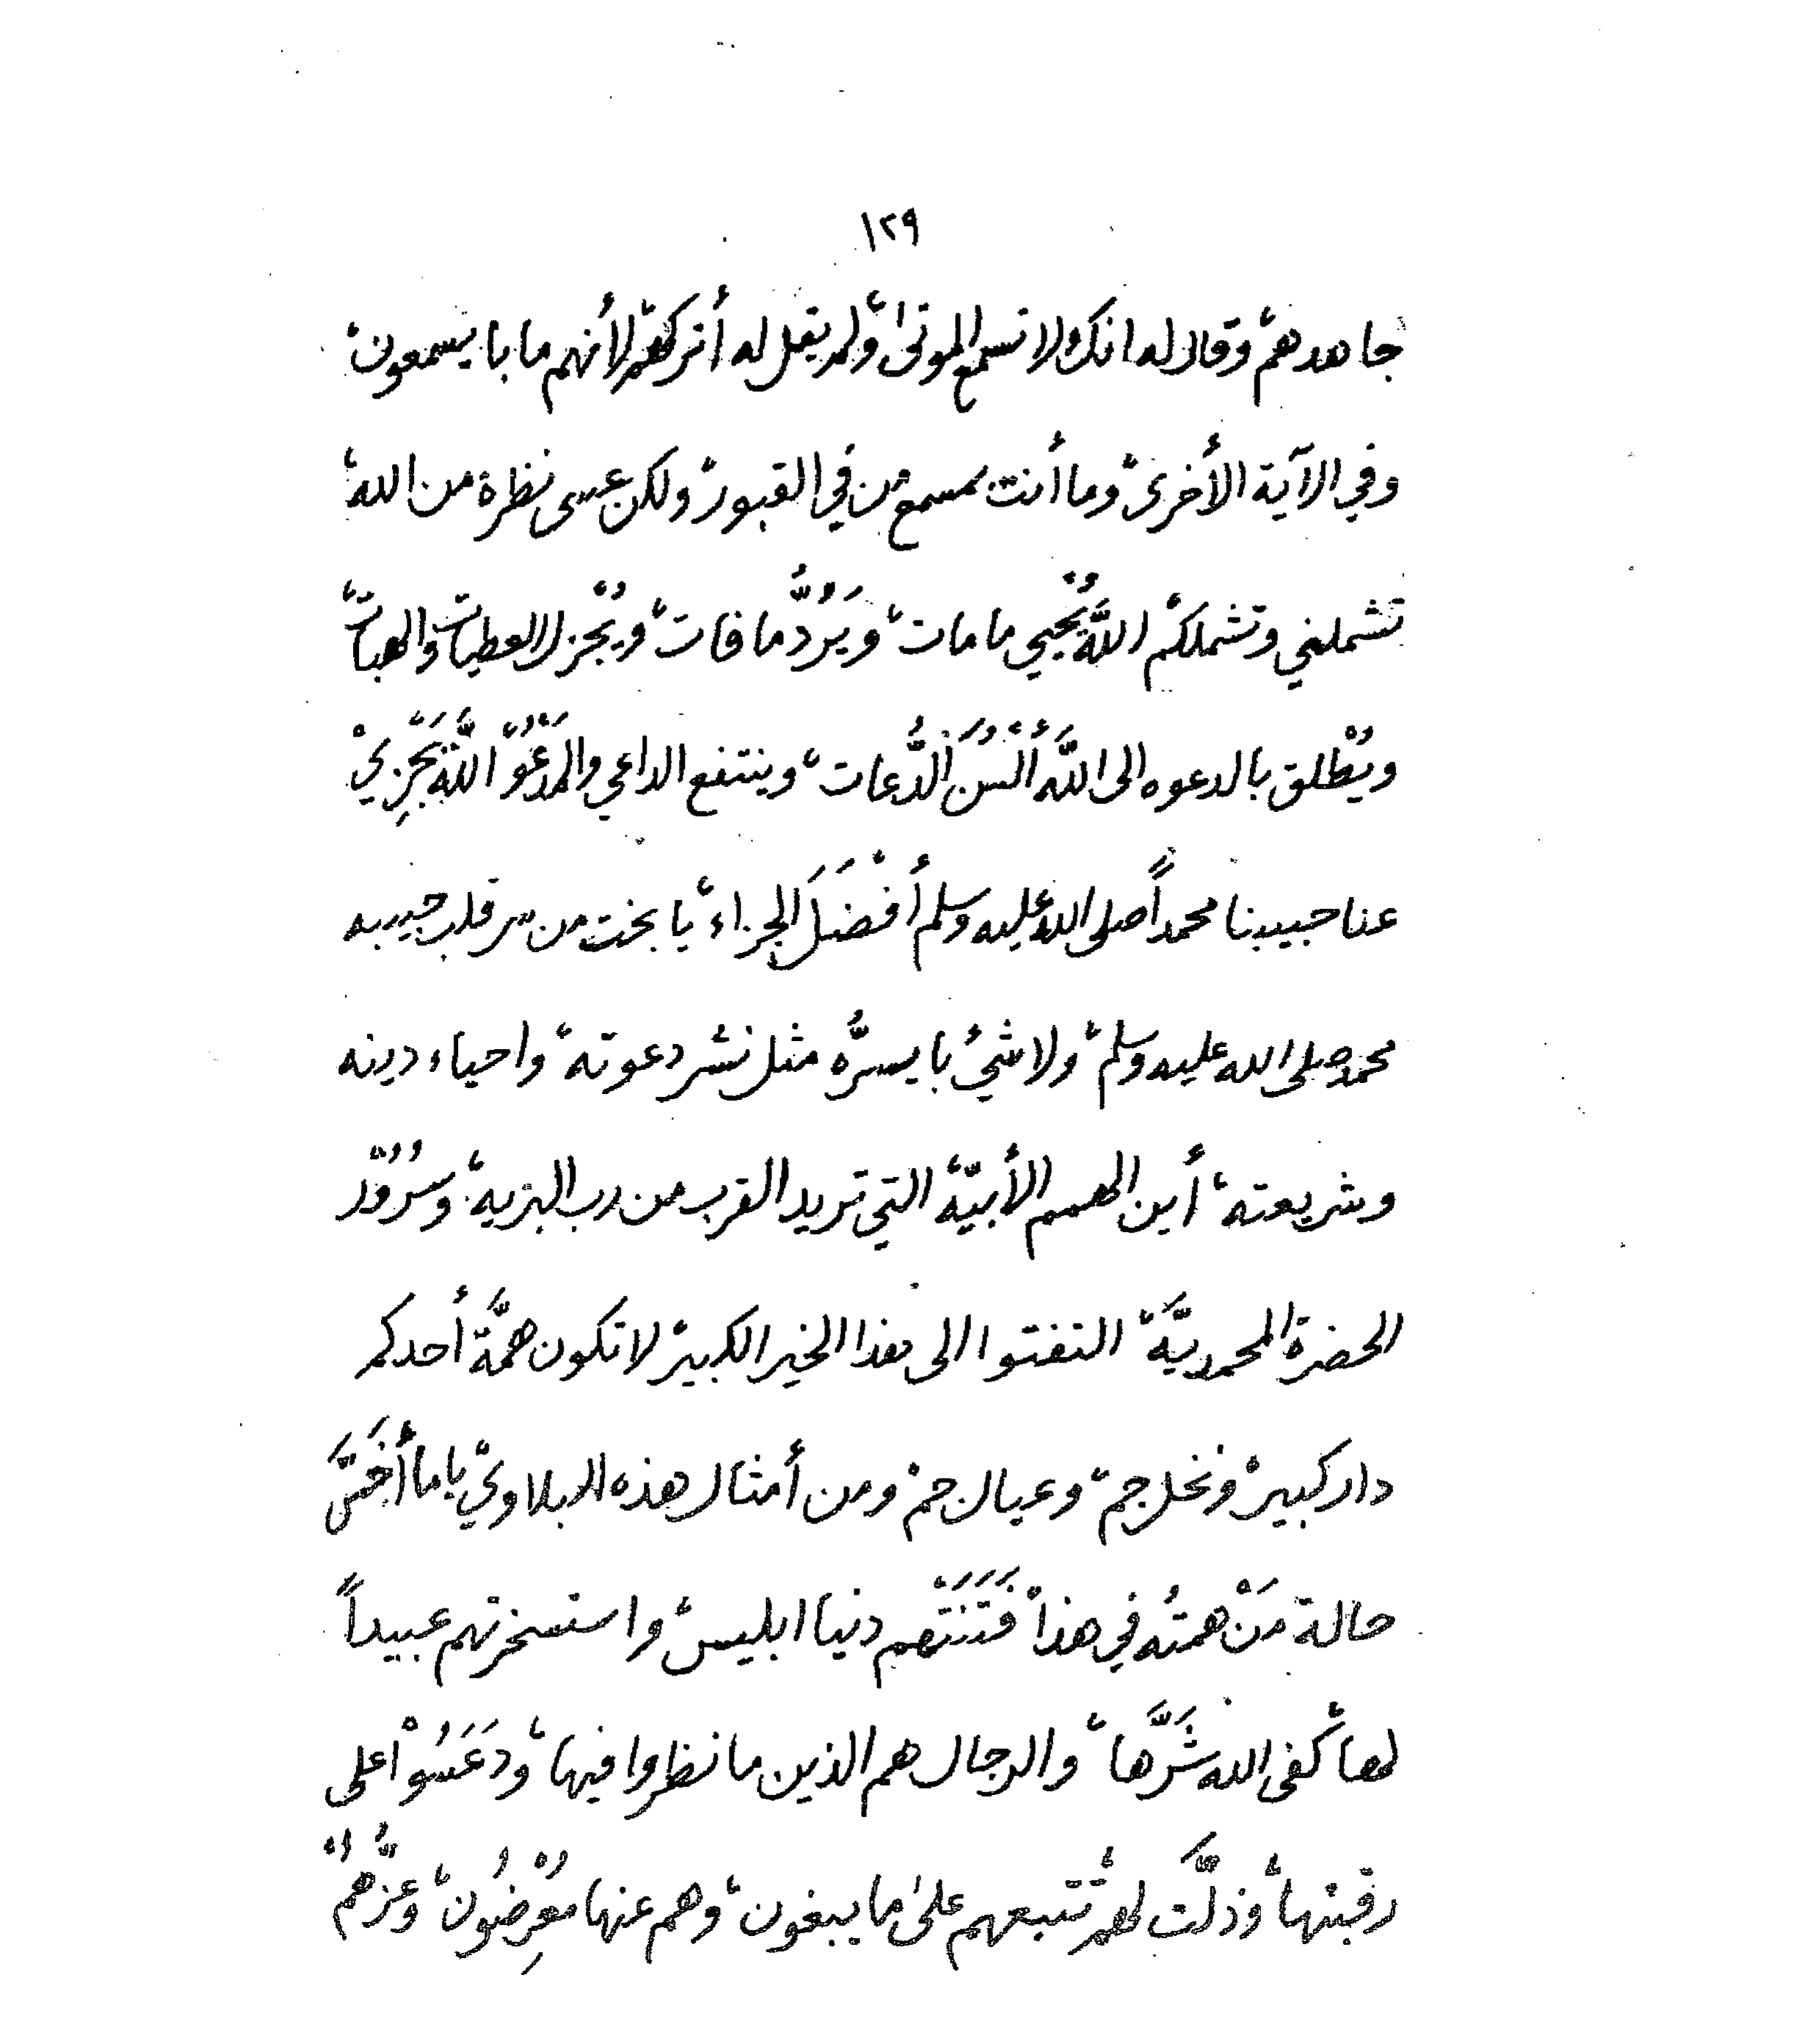 ١٢٩
جاهدهم، وقال له انك لا تسمع الموتىٰ، ولم يقل له أتركهم، لأنهم ما با يسمعون،
وفي الآية الأخرى، وما أنت بمسمع من في القبور، ولكن عسى نظرة من الله،
تشملني وتشملكم، اللَّه يُحْيي ما مات، ويَرُدُّ ما فات، ويُجْزل العطيات، والهبات،
ويُطْلق بالدعوه الى اللَّه أَلْسُنَ الدُّعات، وينتفع الداعي والمَدْعُوّ، اللَّه يَجْزِيْ
عنا حبيبنا محمداً صلى الله عليه وسلم أَفْضَلَ الجزاء، يا بخت من سر قلب حبيبه
محمد صلى الله عليه وسلم، ولا شيُ با يسرُّه مثل نشر دعوته، واحياء دينه
وشريعته، أين الهمم الأبيّة، التي تريد القرب من رب البريه، وسُرُوْر
الحضرة المحمديَّة، التفتوا الى هذا الخير الكبير، لا تكون همَّة أحدكم
دار كبير، ونخل جم، وعيال جم، ومن أمثال هذه البلاوي، يا ما أَخَسَّ
حالة مَنْ همتُه في هذا، فَتَنَتْهم دنيا ابليس، واستسخرتهم عبيداً
لها، كفى الله شَرَّها، والرجال هم الذين ما نظروا فيها، ودَعَسُوْا على
رقبتها، وذلَّت لهم، تتبعهم علىٰ ما يبغون، وهم عنها مُعْرِضُون، وعزُّهمُ